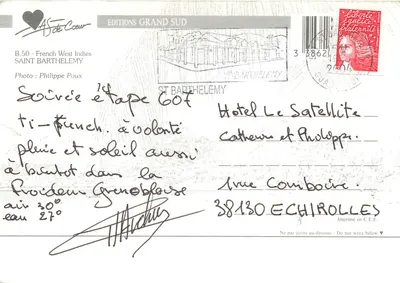 45 de Coeur
EDITIONS GRAND SUD
B.50 - French West Indies
SAINT BARTHELEMY
Photo : Philippe Poux
ST BARTHELEMY
3 38620
liberté
égalité
fraternité
Soirée étape 60F
ti-punch. à volonté
pluie et soleil aussi
à bientôt dans la
Froideur Grenobloise
air 30°
eau 27°
Hotel Le Satellite
Catherine et Philippe.
1 rue Comboire.
38130 ECHIROLLES
Imprimé en C.E.E
Ne pas écrire au-dessous - Do not write below